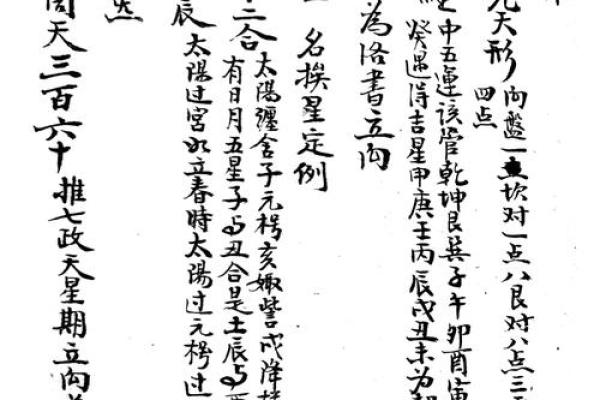 天形 向盤一坎对一点八艮对八点三
四点
中五連該管乾坤艮巽子午卯酉寅
癸選得吉星甲庚壬丙辰戌丑未为
為洛書立向
名挨星定例
二合 太陽纏舍子元枵亥娵訾戌降
有日月五星子与丑合是土辰与酉
辰 太陽过宮如立春時太陽过元枵过
周天三百六十 推七政天星期立向